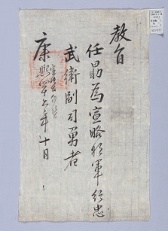 教旨
任易爲宣略將軍行忠
武衛副司勇者
康熙 十 年十月